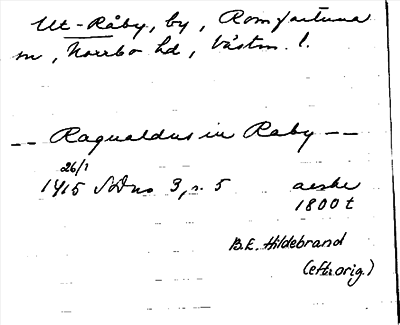 Ut-Råby, by, Romfartuna
sn, Norrbo hd, Västm. l.
-- Ragualdus in Raby --
26/1
1415 SD no 3, s. 5 aeske
1800 t
B.E. Hildebrand
(eft. orig.)